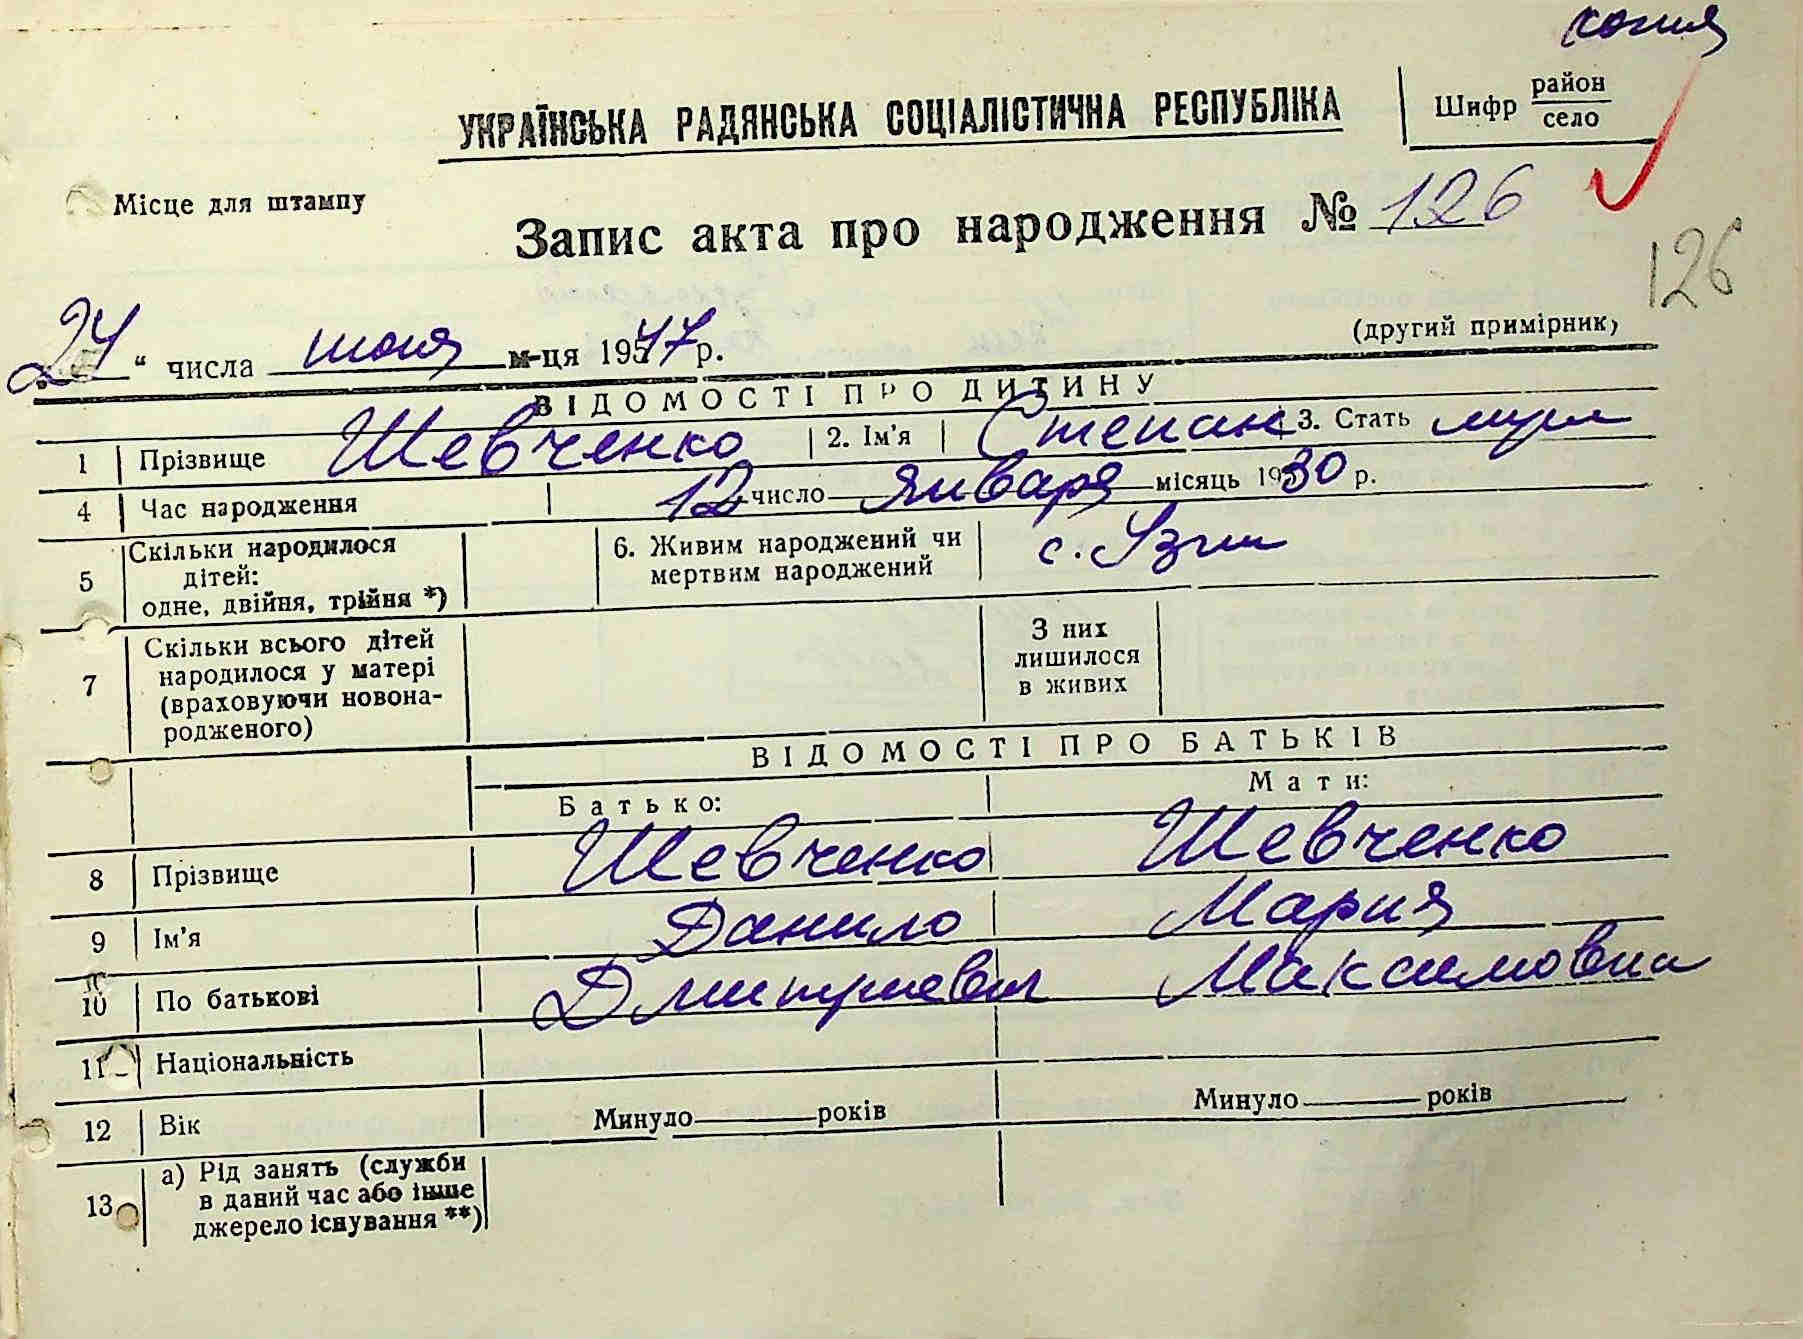 копия
УКРАЇНСЬКА РАДЯНСЬКА СОЦІАЛІСТИЧНА РЕСПУБЛІКА
Шифр район
село
Місце для штампу
Запис акта про народження № 126
126
(другий примірник)
„24“ числа июля м-ця 1947 р.
ВІДОМОСТІ ПРО ДИТИНУ
1 Прізвище Шевченко 2. Ім'я Степан 3. Стать муж
4 Час народження 12 число января місяць 1930 р.
5 Скільки народилося дітей: одне, двійня, трійня *) 6. Живим народжений чи мертвим народжений с. Узин
7 Скільки всього дітей народилося у матері (враховуючи новонародженого) З них лишилося в живих
ВІДОМОСТІ ПРО БАТЬКІВ
Батько: Мати:
8 Прізвище Шевченко Шевченко
9 Ім'я Данило Мария
10 По батькові Дмитриевич Максимовна
11 Національність
12 Вік Минуло років Минуло років
13 а) Рід занять (служби в даний час або інше джерело існування **)